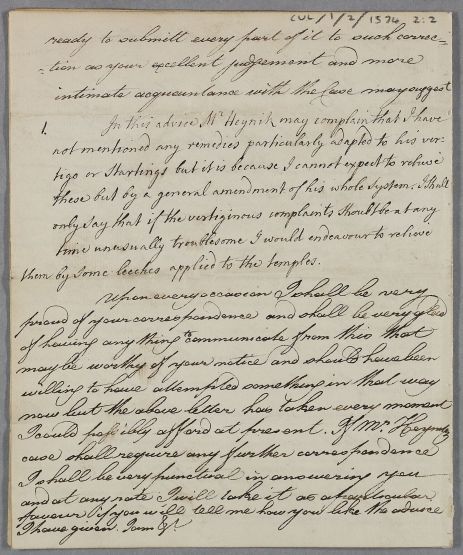 CUL/1/2/1574 2:2
ready to submitt every part of it to such correc-
-tion as your excellent judgement and more
intimate acquaintance with the Case may suggest
1. In this advice Mr Heynitz may complain that I have
not mentioned any remedies particularly adapted to his ver-
tigo or Startings but it is because I cannot expect to relieve
these but by a general amendment of his whole System: I shall
only say that if the vertiginous complaints should be at any
time unusually troublesome I would endeavour to relieve
them by some leeches applied to the temples.
Upon every occasion I shall be very
proud of your correspondence and shall be very glad
of having any thing to communicate from this that
may be worthy of your notice and should have been
willing to have attempted something in that way
now but the above letter has taken every moment
I could possibly afford at present. If Mr Heynitz
case shall require any further correspondence
I shall be very punctual in answering you
and at any rate I will take it as a particular
favour if you will tell me how you like the advice
I have given. I am &c.